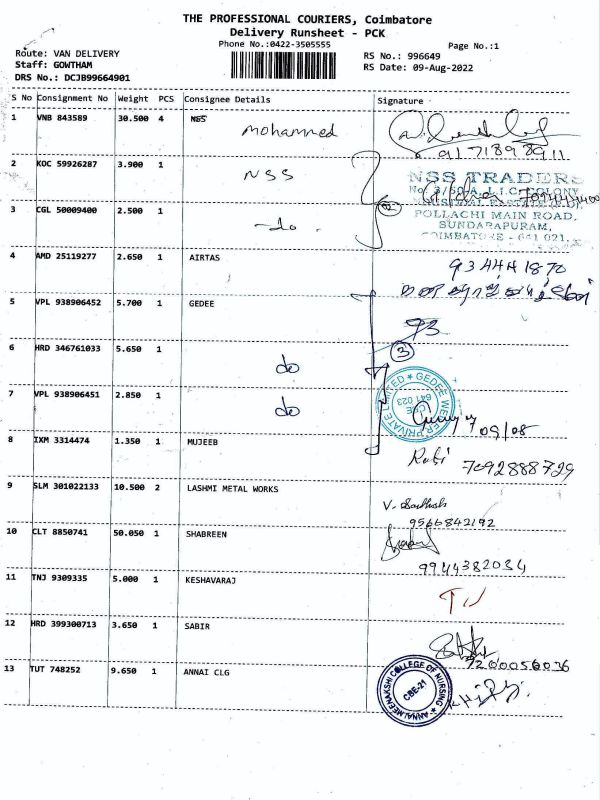 THE PROFESSIONAL COURIERS, Coimbatore
Delivery Runsheet - PCK
Phone No.:0422-3505555
Page No.:1
Route: VAN DELIVERY
Staff: GOWTHAM
DRS No.: DCJB99664901
RS No.: 996649
RS Date: 09-Aug-2022
S No Consignment No Weight PCS Consignee Details Signature
1 VNB 843589 30.500 4 NSS
mohammed
9171898911
2 KOC 59926287 3.900 1
NSS
NSS TRADERS
POLLACHI MAIN ROAD,
SUNDARAPURAM,
COIMBATORE - 641 021.
3 CGL 50009400 2.500 1
-do.
2
4 AMD 25119277 2.650 1 AIRTAS
9344441870
5 VPL 938906452 5.700 1 GEDEE
93
6 HRD 346761033 5.650 1
do
3
7 VPL 938906451 2.850 1
do
GEDEE WEILER PRIVATE LIMITED
CBE
641 023
09/08
8 IXM 3314474 1.350 1 MUJEEB
Rabi
7092888729
9 SLM 301022133 10.500 2 LASHMI METAL WORKS
9566842192
10 CLT 8850741 50.050 1 SHABREEN
9944382034
11 TNJ 9309335 5.000 1 KESHAVARAJ
12 HRD 399300713 3.650 1 SABIR
9200056036
13 TUT 748252 9.650 1 ANNAI CLG
ANNAI MEENAKSHI COLLEGE OF NURSING
CBE-21